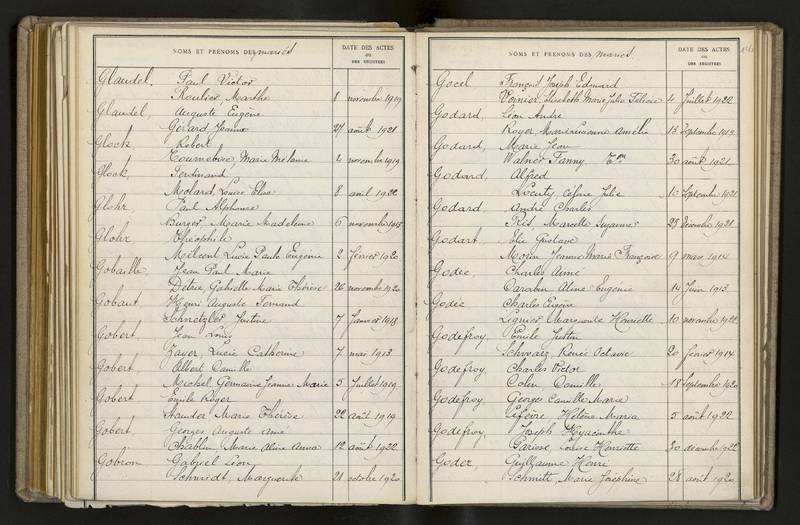 NOMS ET PRÉNOMS DES mariés
DATE DES ACTES
OU
DES REGISTRES
Glaudel, Paul Victor
Roulier, Marthe 8 novembre 1919
Glaudel, Auguste Eugène
Gérard, Jeanne 27 août 1921
Glock, Robert
Tournebise, Marie Mélanie 4 novembre 1919
Glock, Ferdinand
Molard, Louise Elise 8 avril 1922
Glohr, Paul Alphonse
Burger, Marie Madeleine 6 novembre
Glohr, Théophile
Milvent Lucie Paule Eugénie 2 février 1920
Gobaille, Jean Paul Marie
Détrie, Gabrielle Marie Thérèse 26 novembre 1920
Gobaut, Henri Auguste Fernand
Schnetzler, Justine 7 Janvier 1918
Gobert, Jean Louis
Jayer, Lucie Catherine 7 mai 1913
Gobert, Albert Camille
Michel, Germaine Jeanne Marie 5 Juillet 1919
Gobert, Emile Roger
Stauder, Marie Thérèse 22 août 1919
Gobert, Georges Auguste Aimé
Chablin, Marie Aline Anna 12 août 1922
Gobron, Gabriel Léon
Schmidt, Marguerite 21 octobre 1920
NOMS ET PRÉNOMS DES mariés
DATE DES ACTES
OU
DES REGISTRES
Gocel, François Joseph Edouard
Voinier, Elisabeth Marie Julie Félicie 4 Juillet 1922
Godard, Léon André
Royer, Amélie 13 Septembre 1919
Godard, Marie Jean
Walner Fanny 30 août 1921
Godard, Alfred
Julie 10 Septembre 1921
Godard, André Charles
Ris, Marcelle Suzanne 28 Décembre 1921
Godart, Elie Gustave
Morin, Jeanne Marie Françoise 9 mars 1914
Godée, Charles Aimé
Carabin Aline Eugénie 14 Juin 1913
Godée, Charles Eugène
Lignier, Marguerite Henriette 10 novembre 1922
Godefroy, Emile Justin
Schwarz, Renée Octavie 20 février 1914
Godefroy, Charles Victor
Colin, Camille 18 Septembre 1920
Godefroy, Georges Camille Marie
Lefèvre, Hélène Maria 5 août 1922
Godefroy, Joseph Hyacinthe
Louise Henriette 30 décembre 1922
Goder, Guillaume Henri
Schmitt, Marie Joséphine 28 août 1920